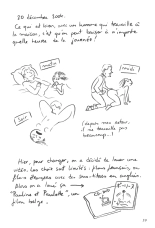 20 décembre 2004.
Ce qui est bien, avec un homme qui travaille à
la maison, c'est qu'on peut baiser à n'importe
quelle heure de la journée!
matin
midi
soir
(depuis mon retour,
il ne travaille pas
beaucoup...!)
Hier, pour changer, on a décidé de louer une
vidéo. Les choix sont limités: films français, ou
films étrangers avec les sous-titres en anglais.
Alors on a loué ça
"Pauline et Paulette", un
film belge.